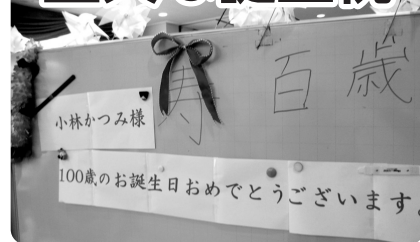 寿 百 歳
小林かつみ様
100歳のお誕生日おめでとうございます